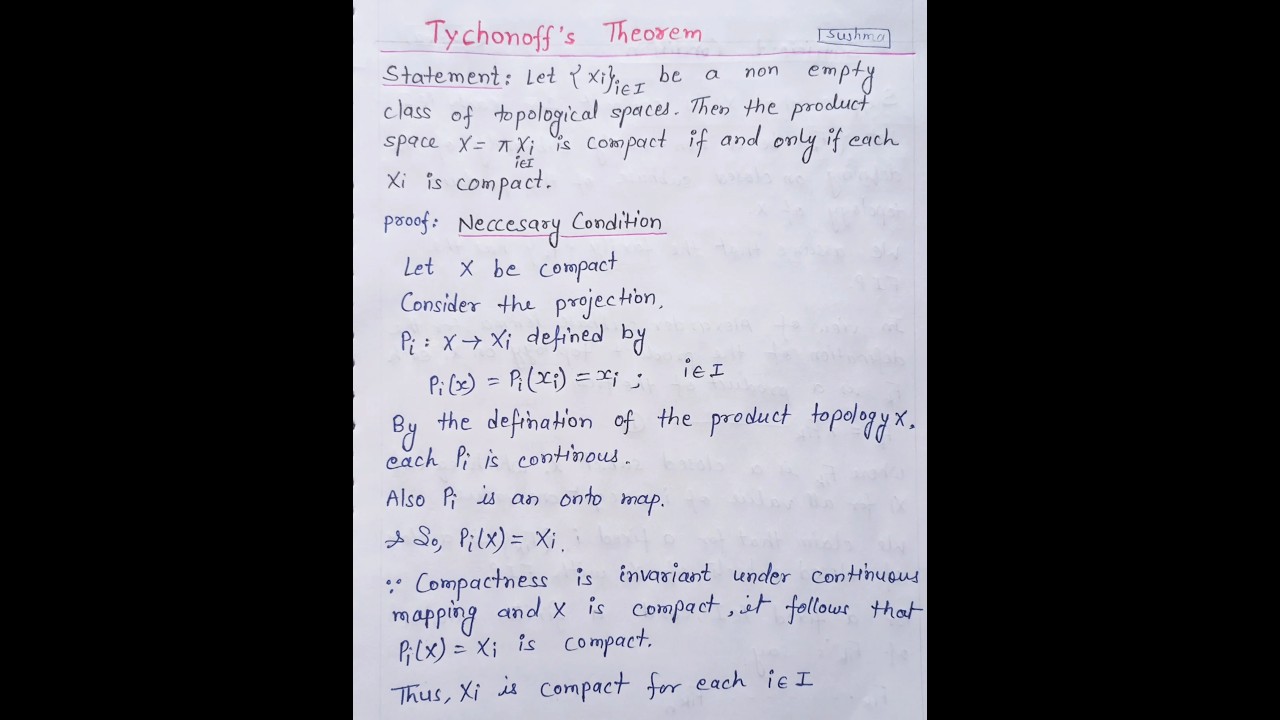 Tychonoff's Theorem
Sushma
Statement: Let {Xi}i∈I be a non empty
class of topological spaces. Then the product
space X = π Xi is compact if and only if each
i∈I
Xi is compact.
proof: Neccesary Condition
Let X be compact
Consider the projection,
Pi : X → Xi defined by
Pi(x) = Pi(xi) = xi ; i∈I
By the defination of the product topology X,
each Pi is continous.
Also Pi is an onto map.
So, Pi(X) = Xi.
∵ Compactness is invariant under continuous
mapping and X is compact, it follows that
Pi(X) = Xi is compact.
Thus, Xi is compact for each i∈I